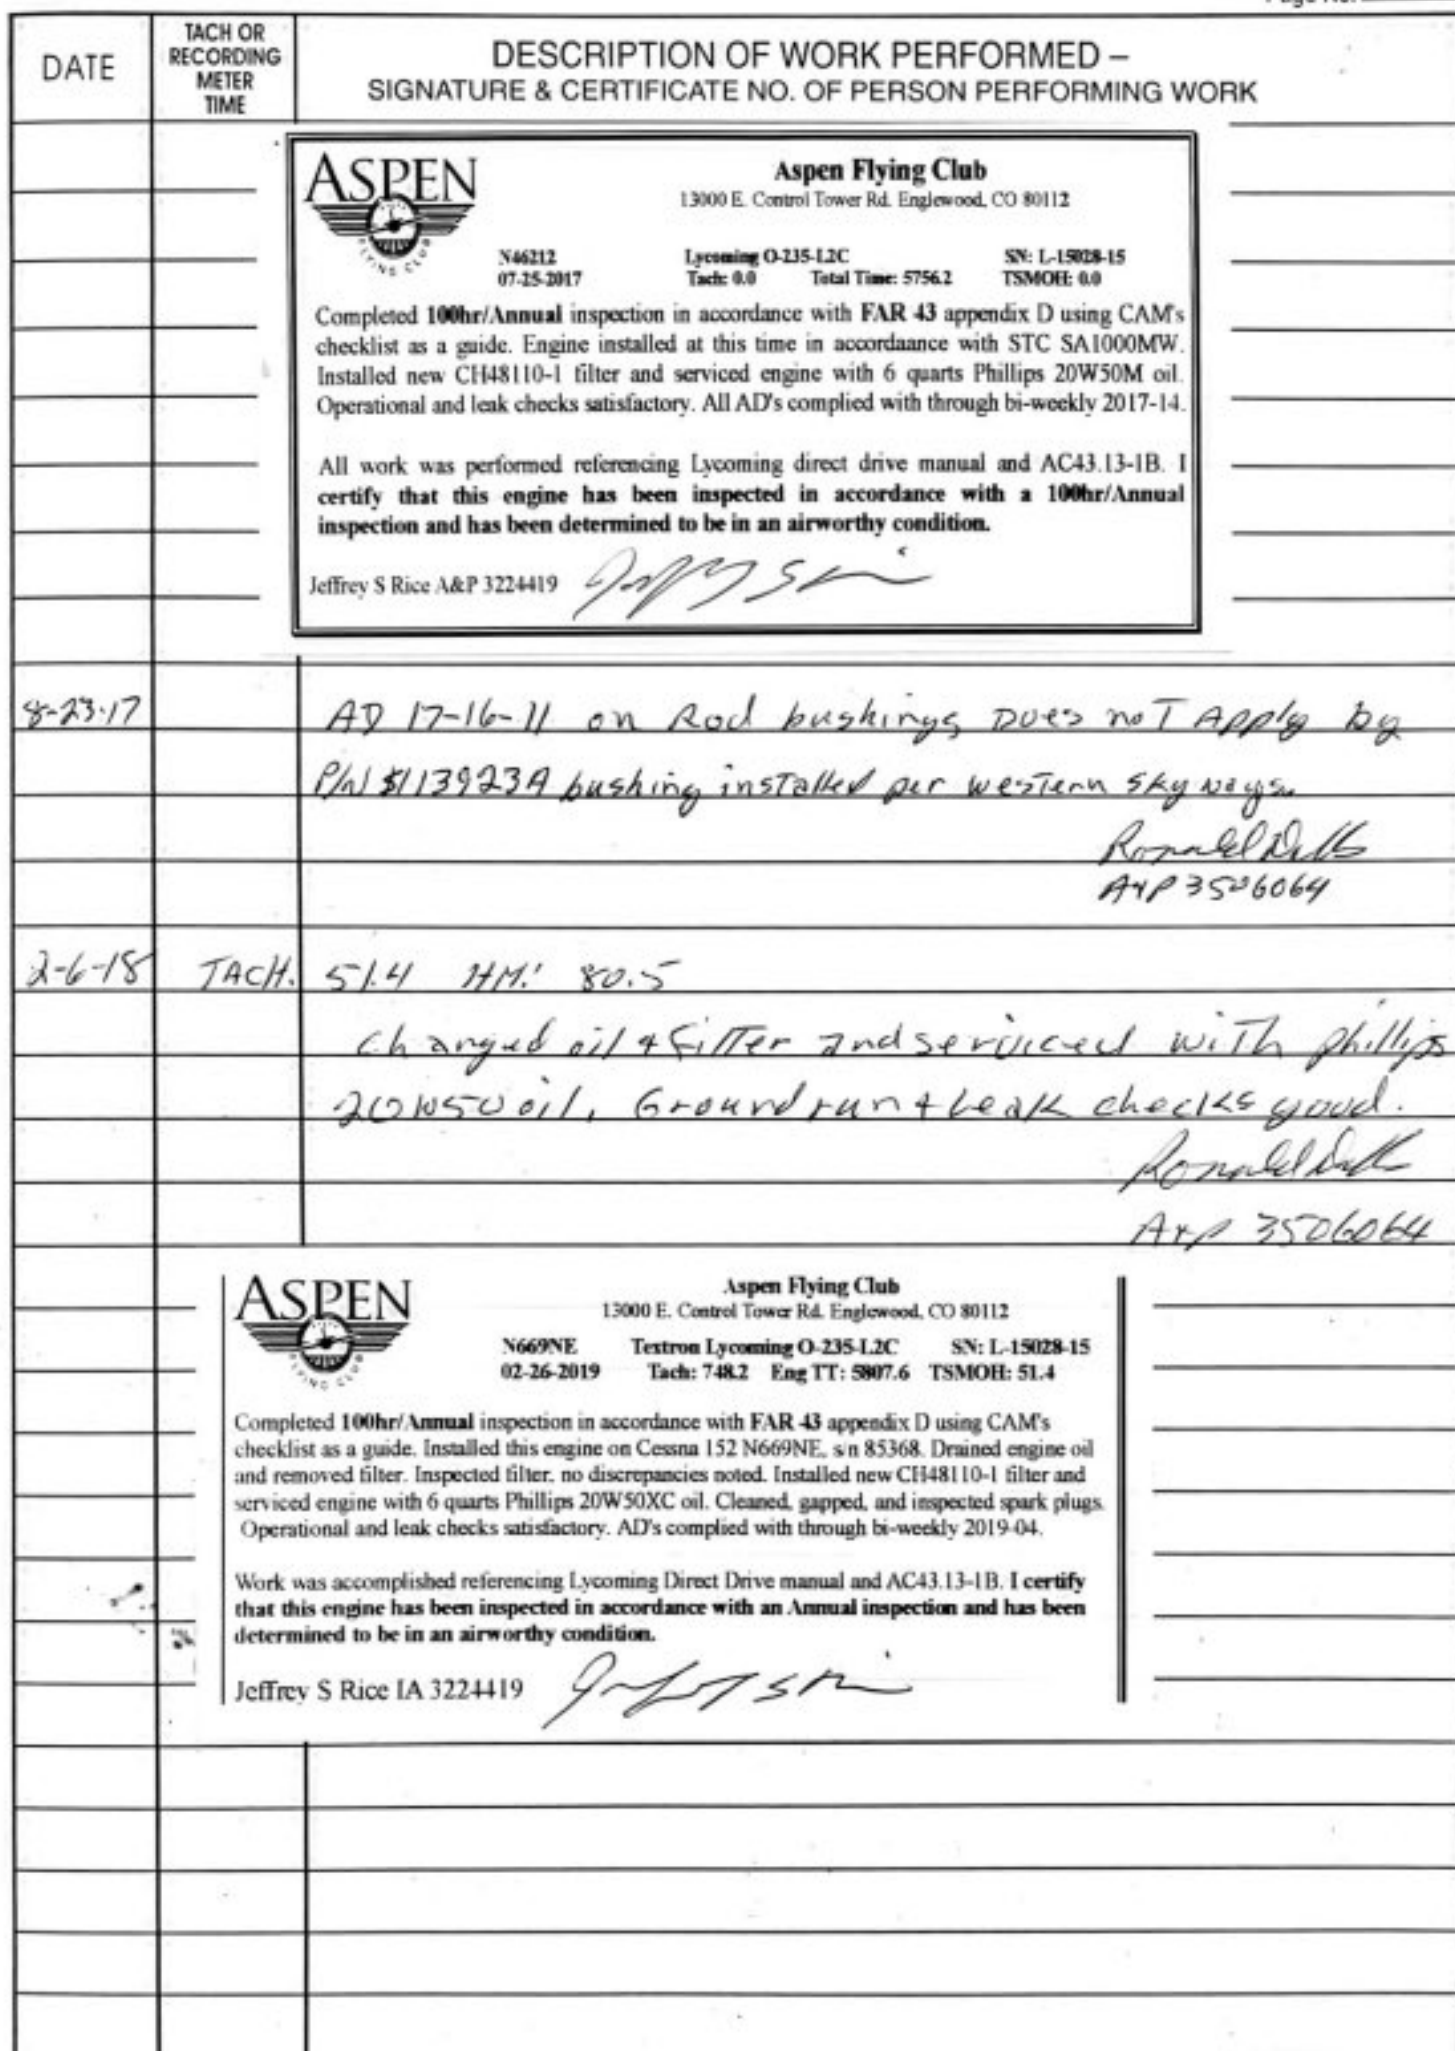 DATE
TACH OR
RECORDING
METER
TIME
DESCRIPTION OF WORK PERFORMED –
SIGNATURE & CERTIFICATE NO. OF PERSON PERFORMING WORK
ASPEN
FLYING CLUB
Aspen Flying Club
13000 E. Control Tower Rd. Englewood, CO 80112
N46212 Lycoming O-235-L2C SN: L-15028-15
07-25-2017 Tach: 0.0 Total Time: 5756.2 TSMOH: 0.0
Completed 100hr/Annual inspection in accordance with FAR 43 appendix D using CAM's
checklist as a guide. Engine installed at this time in accordaance with STC SA1000MW.
Installed new CH48110-1 filter and serviced engine with 6 quarts Phillips 20W50M oil.
Operational and leak checks satisfactory. All AD's complied with through bi-weekly 2017-14.
All work was performed referencing Lycoming direct drive manual and AC43.13-1B. I
certify that this engine has been inspected in accordance with a 100hr/Annual
inspection and has been determined to be in an airworthy condition.
Jeffrey S Rice A&P 3224419
8-23-17 AD 17-16-11 on Rod bushings Does noT Apply by
P/N 113923A bushing insTalled per wesTern sky ways.
Ronald
A+P 3506064
2-6-18 TACH. 51.4 HM: 80.5
changed oil & filTer and serviced wiTh phillips
20W50 oil, Ground run + Leak checks good.
Ronald
A+P 3506064
ASPEN
FLYING CLUB
Aspen Flying Club
13000 E. Control Tower Rd. Englewood, CO 80112
N669NE Textron Lycoming O-235-L2C SN: L-15028-15
02-26-2019 Tach: 748.2 Eng TT: 5807.6 TSMOH: 51.4
Completed 100hr/Annual inspection in accordance with FAR 43 appendix D using CAM's
checklist as a guide. Installed this engine on Cessna 152 N669NE, s/n 85368. Drained engine oil
and removed filter. Inspected filter, no discrepancies noted. Installed new CH48110-1 filter and
serviced engine with 6 quarts Phillips 20W50XC oil. Cleaned, gapped, and inspected spark plugs.
Operational and leak checks satisfactory. AD's complied with through bi-weekly 2019-04.
Work was accomplished referencing Lycoming Direct Drive manual and AC43.13-1B. I certify
that this engine has been inspected in accordance with an Annual inspection and has been
determined to be in an airworthy condition.
Jeffrey S Rice IA 3224419